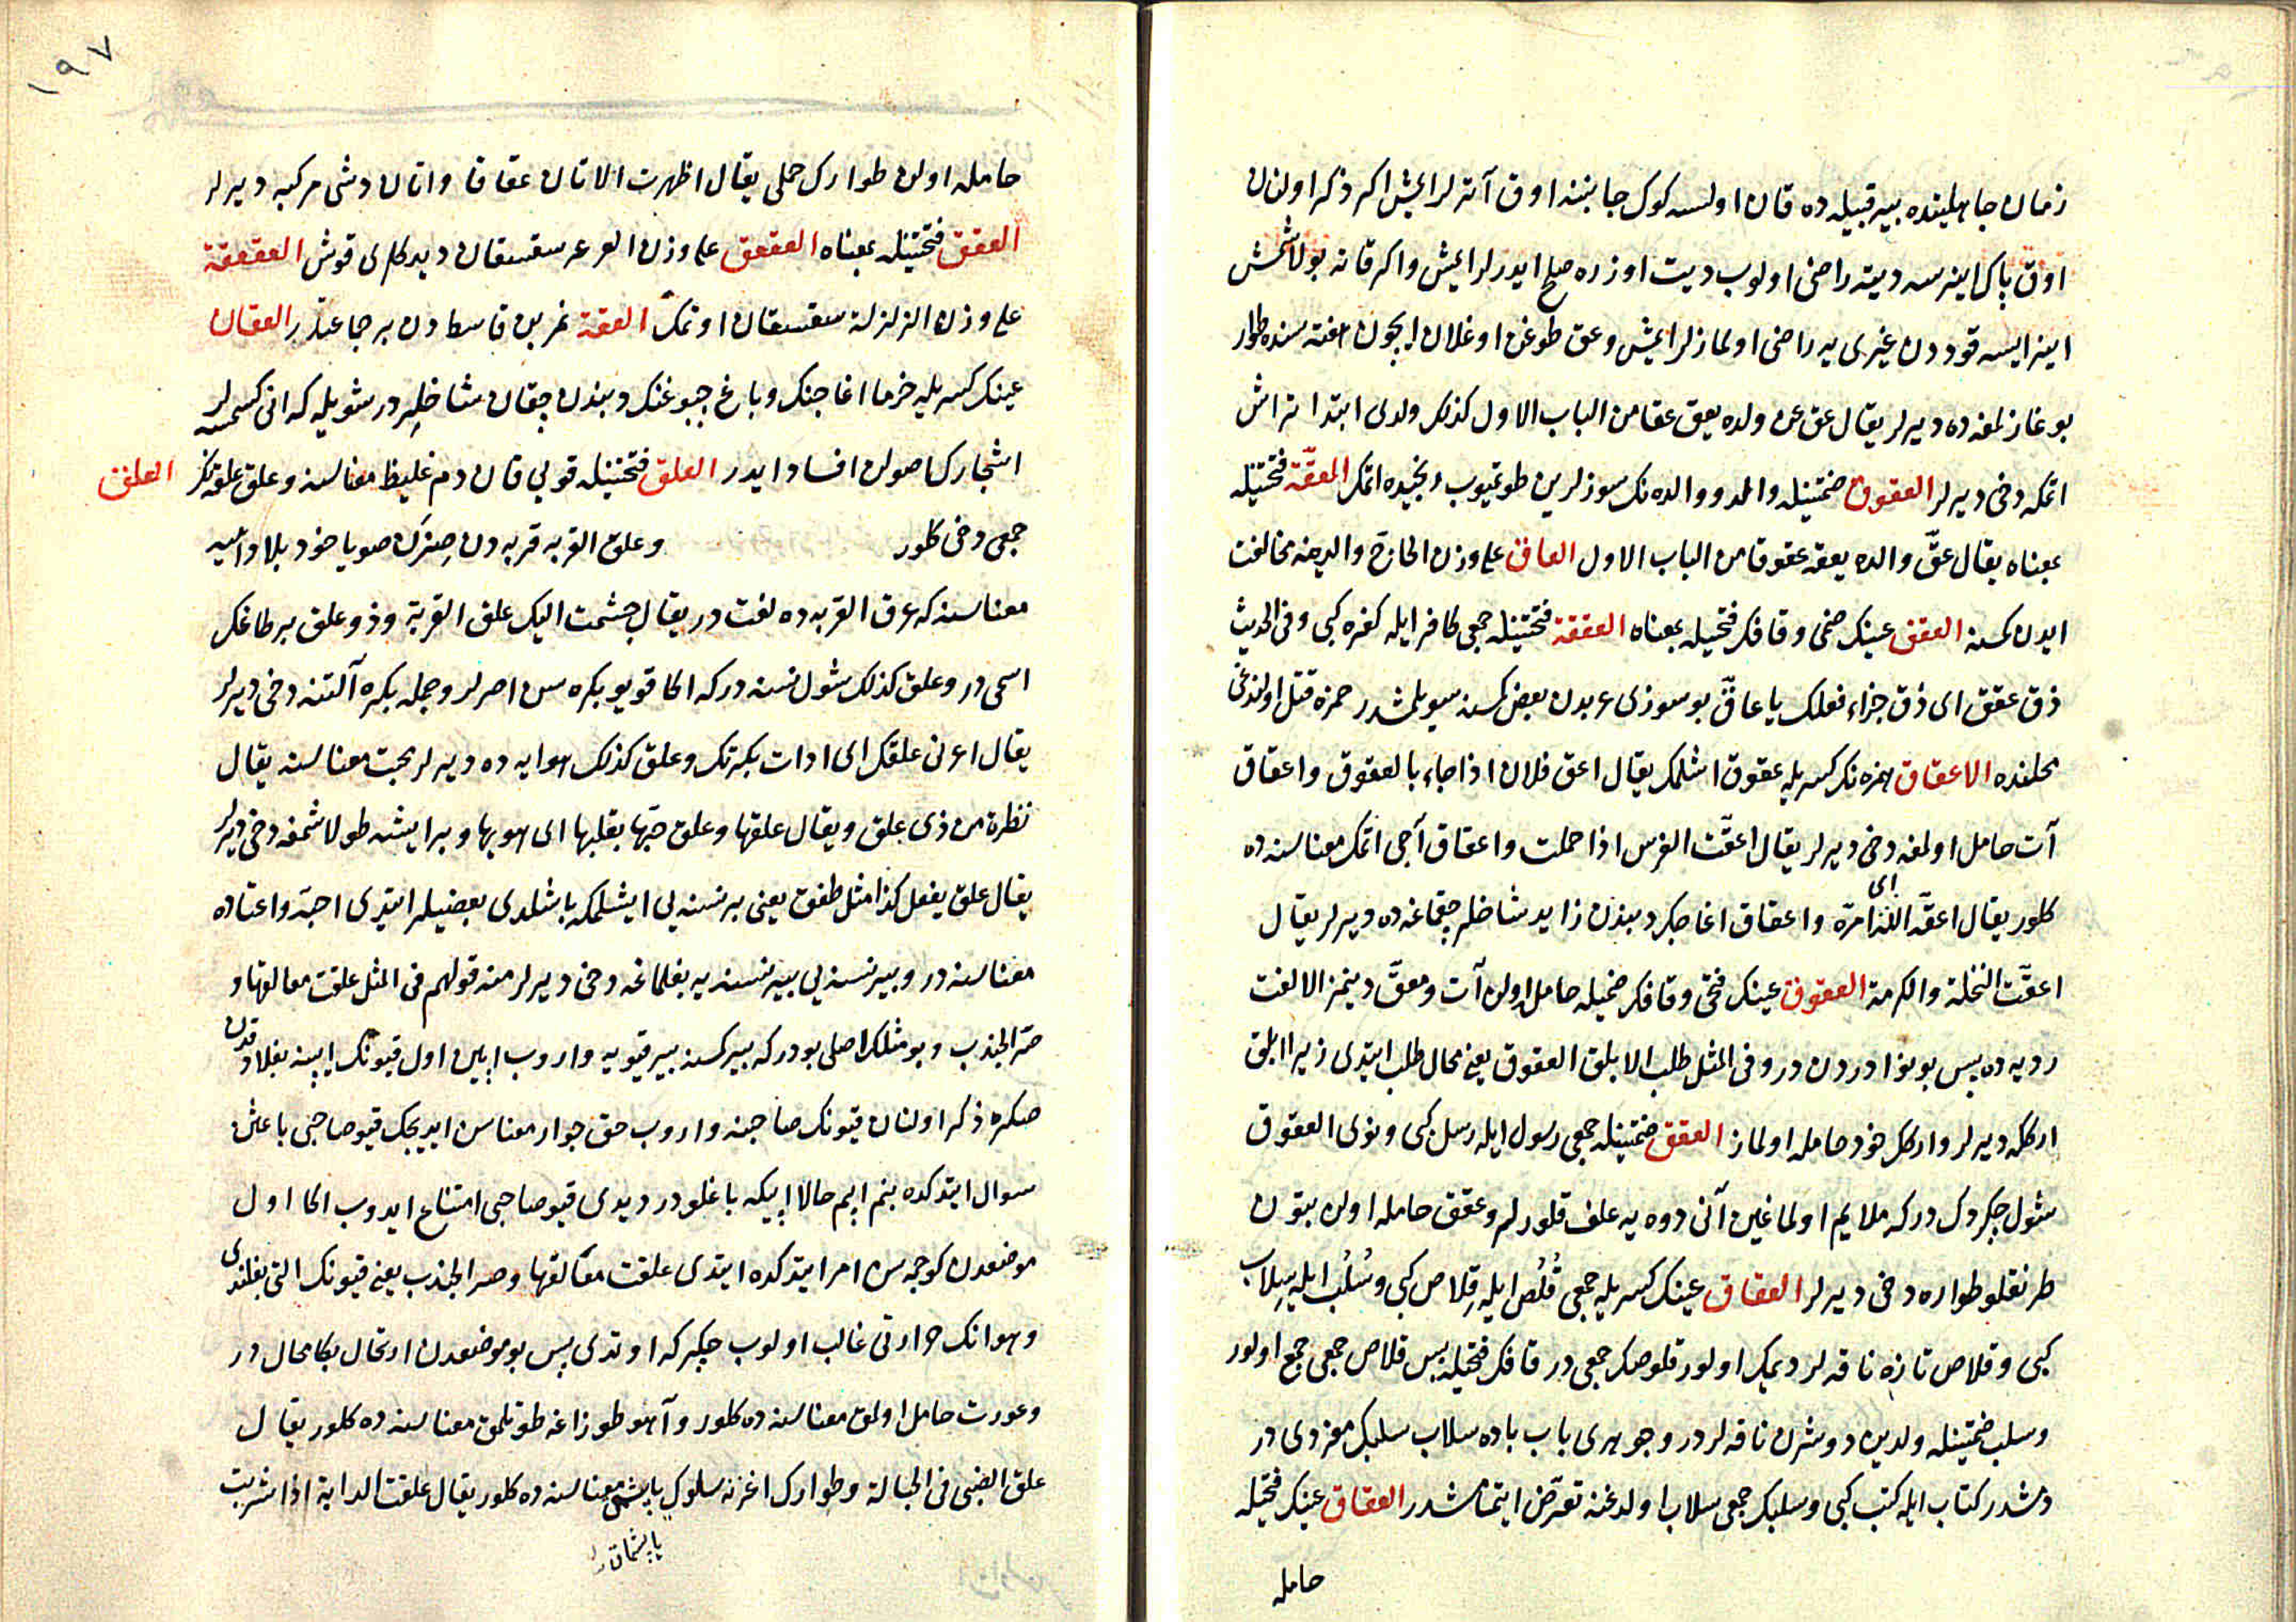 زمان جاهلیتده بیر قبیله ده قان اولسه کوک جانبنه اوق آتر لر ایمش اکر ذکر اولنان
اوق پاک اینرسه دیته راضی اولوب دیت اوزره صلح ایدرلر ایمش واکر قانه بولاشمش
اینر ایسه قوددن غیری یه راضی اولمازلر ایمش وعق طوغن اوغلان ایچون هفته سنده طوار
بوغازلمغه ده دیرلر یقال عق عن ولده یعق عقا من الباب الاول کذلک ولدی ابتدا تراش
اتمکه دخی دیرلر العقوق ضمتینله والد و والده نک سوزلرین طوتمیوب رنجیده اتمک المعقّة فتحتینله
بمعناه یقال عقّ والده یعقه عقوقا من الباب الاول العاق علی وزن الحاج والدینه مخالفت
ایدن کمسنه العقق عینک ضمی وقافک فتحیله بمعناه العققة فتحتینله جمعی کافر ایله کفره کبی وفی الحدیث
ذق عقق ای ذق جزاء فعلک یا عاقّ بو سوزی عربدن بعض کمسنه سویلمشدر حمزه قتل اولندغی
محلنده الاعقاق همزه نک کسریله عقوق اشلمک یقال اعق فلان اذا جاء بالعقوق واعقاق
آت حامل اولمغه دخی دیرلر یقال اعقّت الفرس اذا حملت واعقاق آجی اتمک معناسنه ده
کلور یقال اعقّه الله ای امرّه واعقاق اغاجک دیبندن زاید شاخلر چقماغه ده دیرلر یقال
اعقّت النخلة والکرمة العقوق عینک فتحی وقافک ضمیله حامل اولن آت ومعقّ دینمز الا لغت
ردیه ده پس بو نوادردن در وفی المثل طلب الابلق العقوق یعنی محال طلب ایتدی زیرا ابلق
ارککه دیرلر وارکک خود حامله اولماز العقق ضمتینله جمعی رسول ایله رسل کبی ونوی العقوق
شول چکردک در که ملایم اولماغین آنی دوه یه علف قلورلر وعقق حامله اولن بتون
طرنقلو طواره دخی دیرلر العقاق عینک کسریله جمعی قُلُص ایله قِلاص کبی وسُلُب ایله سِلاب
کبی وقلاص تازه ناقه لر دیمک اولور قلوصک جمعی در قافک فتحیله پس قلاص جمعی جمع اولور
وسلب ضمتینله ولدین دوشرن ناقه لردر وجوهری باب باده سلاب سلبک مفردی در
دمشدر کتاب ایله کتب کبی وسلبک جمعی سلاب اولدغنه تعرّض ایتمامشدر العقاق عینک فتحیله
حامله
١٩٧
حامله اولن طوارک حملی یقال اظهرت الاتان عقاقا واتان دشی مرکبه دیرلر
العقق فتحتینله بمعناه العقعق علی وزن العرعر سقسقان دیدکلری قوش العقعقة
علی وزن الزلزلة سقسقان اوتمک العقة نمر بن قاسطدن بر جماعتدر العقان
عینک کسریله خرما اغاجنک وباغ جبوغنک دبندن چقان شاخلردر شویله که انی کسمسه لر
اشجارک اصولن افساد ایدر العلق فتحتینله قویی قان دم غلیظ معناسنه وعلق علقه نک العلق
جمعی دخی کلور وعلق القربه قربه دن صزن صویا خود بلا وامیه
معناسنه که عرق القربه ده لغت در یقال جشمت الیک علق القربة وذو علق بر طاغک
اسمی در وعلق کذلک شول نسنه در که اکا قویو بکره سن اصرلر وجمله بکره آلتنه دخی دیرلر
یقال اعرنی علقک ای ادات بکرتک وعلق کذلک هوایه ده دیرلر محبت معناسنه یقال
نظرة من ذی علق ویقال علقها وعلق حبّها بقلبه ای هویها وبر ایشه طولاشمغه دخی دیرلر
یقال علق یفعل کذا مثل طفق یعنی بر نسنه یی ایشلمکه باشلدی بعضیلر ایتدی احبّه واعتاده
معناسنه در وبیر نسنه یی بیر نسنه یه بغلماغه دخی دیرلر منه قولهم فی المثل علقت معالقها و
صرّ الجندب وبو مثلک اصلی بودر که بیر کمسنه بیر قیویه واروب ایپین اول قیونک ایپنه بغلادقدن
صکره ذکر اولنان قیونک صاحبنه واروب حق جوار معناسن ایدیجک قیو صاحبی باعثن
سوال ایتدکده بنم ایپم حالا ایپکه باغلودر دیدی قیو صاحبی امتناع ایدوب اکا اول
موضعدن کوچمه سن امر ایتدکده ایتدی علقت معالقها وصر الجندب یعنی قیونک التی بغلندی
وهوانک حرارتی غالب اولوب چکرکه اوتدی پس بو موضعدن ارتحال بکا محال در
وعورت حامل اولمق معناسنه ده کلور وآهو طوزاغه طوتلمق معناسنه ده کلور یقال
علق الظبی فی الحبالة وطوارک اغزنه سلوک یاپشمق معناسنه ده کلور یقال علقت الدابة اذا شربت
یاپشماق